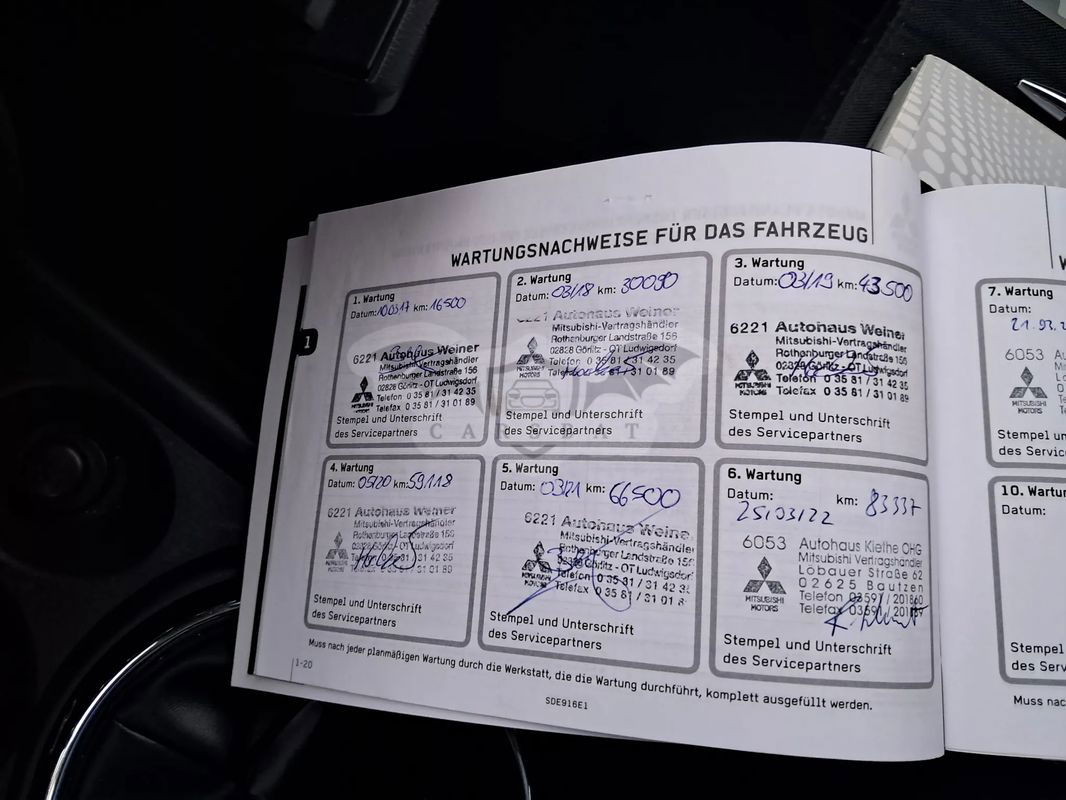 WARTUNGSNACHWEISE FÜR DAS FAHRZEUG
1
1. Wartung
Datum: 100317 km: 16500
6221 Autohaus Weiner
Mitsubishi-Vertragshändler
Rothenburger Landstraße 156
02828 Görlitz - OT Ludwigsdorf
Telefon 0 35 81 / 31 42 35
Telefax 0 35 81 / 31 01 89
Stempel und Unterschrift
des Servicepartners
2. Wartung
Datum: 03/18 km: 30090
6221 Autohaus Weiner
Mitsubishi-Vertragshändler
Rothenburger Landstraße 156
02828 Görlitz - OT Ludwigsdorf
Telefon 0 35 81 / 31 42 35
31 01 89
MITSUBISHI
MOTORS
Stempel und Unterschrift
des Servicepartners
3. Wartung
Datum: 03/19 km: 43500
6221 Autohaus Weiner
Mitsubishi-Vertragshändler
Rothenburger Landstraße 156
02828 Görlitz - OT Ludwigsdorf
Telefon 0 35 81 / 31 42 35
Telefax 0 35 81 / 31 01 89
MITSUBISHI
MOTORS
Stempel und Unterschrift
des Servicepartners
CARSBAT
4. Wartung
Datum: 05/20 km: 59118
6221 Autohaus Weiner
Mitsubishi-Vertragshändler
Rothenburger Landstraße 156
02828 Görlitz - OT Ludwigsdorf
31 42 35
31 01 89
MITSUBISHI
MOTORS
Stempel und Unterschrift
des Servicepartners
5. Wartung
Datum: 03/21 km: 66500
6221 Autohaus Weine
Mitsubishi-Vertragshändler
Rothenburger Landstraße 15
02828 Görlitz - OT Ludwigsdorf
Telefon 0 35 81 / 31 42 3
Telefax 0 35 81 / 31 01 8
MITSUBISHI
MOTORS
Stempel und Unterschrift
des Servicepartners
6. Wartung
Datum: km: 83337
25/03/22
6053 Autohaus Kiethe OHG
Mitsubishi Vertragshändler
Löbauer Straße 62
02625 Bautzen
Telefon 03591/201860
Telefax 03591/201
MITSUBISHI
MOTORS
Stempel und Unterschrift
des Servicepartners
Muss nach jeder planmäßigen Wartung durch die Werkstatt, die die Wartung durchführt, komplett ausgefüllt werden.
1-20
SDE916E1
W
7. Wartung
Datum:
21.03.2
6053 A
MITSUBISHI
MOTORS
Stempel u
des Service
10. Wartu
Datum:
Stempel u
des Servic
Muss nac